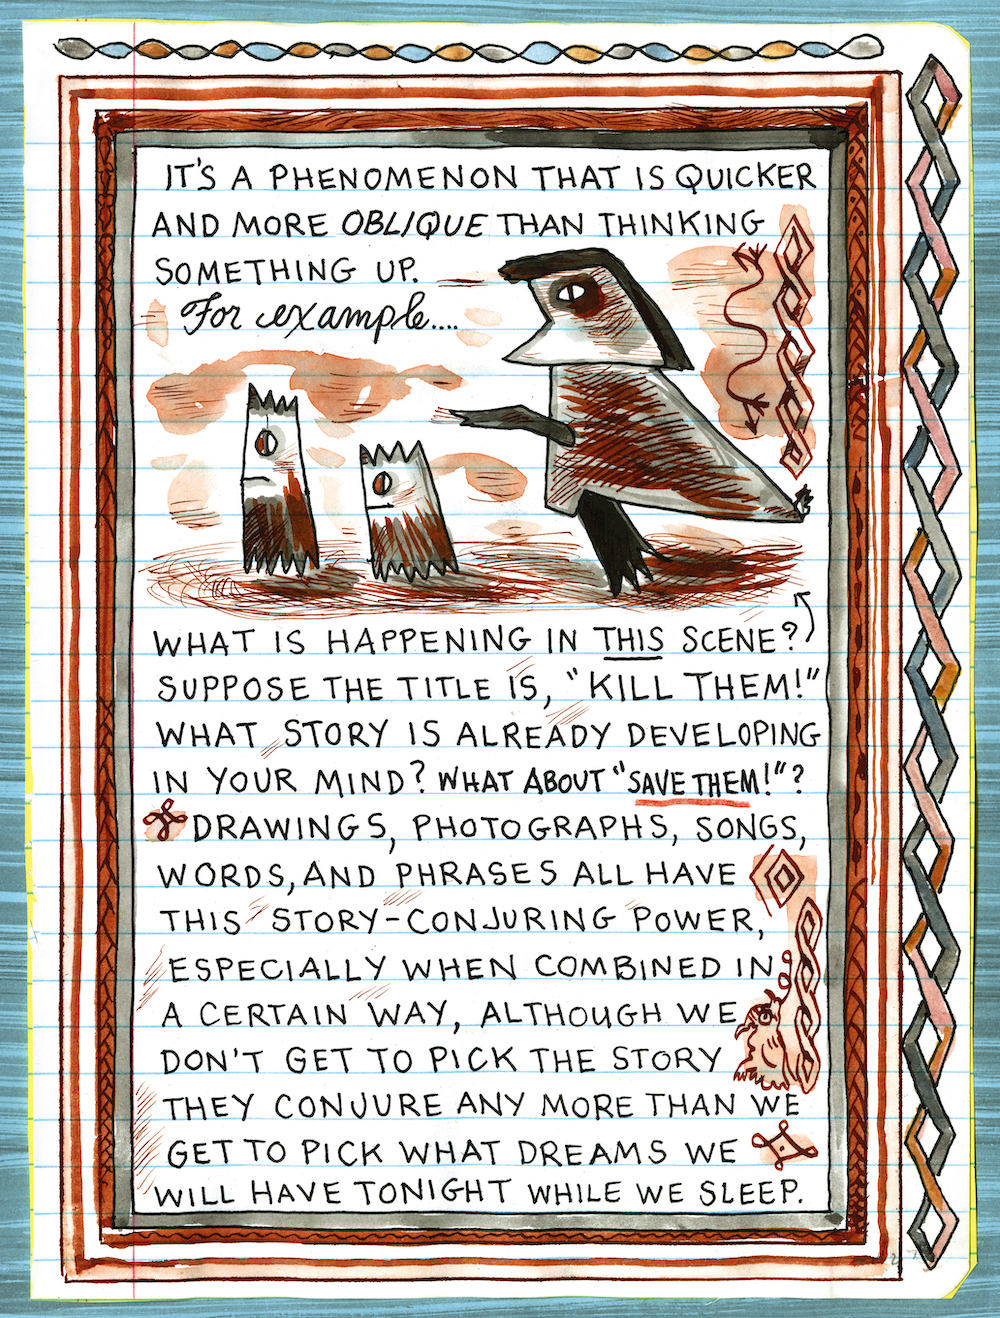 IT'S A PHENOMENON THAT IS QUICKER
AND MORE OBLIQUE THAN THINKING
SOMETHING UP.
For example....
WHAT IS HAPPENING IN THIS SCENE?
SUPPOSE THE TITLE IS, "KILL THEM!"
WHAT STORY IS ALREADY DEVELOPING
IN YOUR MIND? WHAT ABOUT "SAVE THEM!"?
DRAWINGS, PHOTOGRAPHS, SONGS,
WORDS, AND PHRASES ALL HAVE
THIS STORY-CONJURING POWER,
ESPECIALLY WHEN COMBINED IN
A CERTAIN WAY, ALTHOUGH WE
DON'T GET TO PICK THE STORY
THEY CONJURE ANY MORE THAN WE
GET TO PICK WHAT DREAMS WE
WILL HAVE TONIGHT WHILE WE SLEEP.